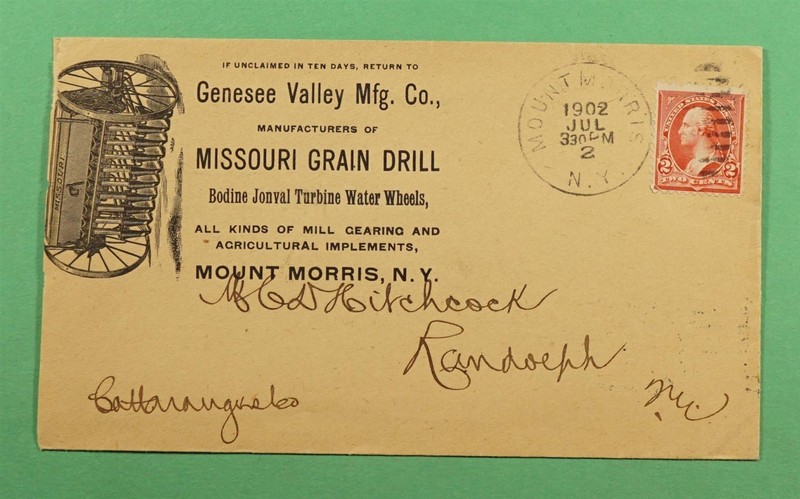 IF UNCLAIMED IN TEN DAYS, RETURN TO
Genesee Valley Mfg. Co.,
MANUFACTURERS OF
MISSOURI GRAIN DRILL
Bodine Jonval Turbine Water Wheels,
ALL KINDS OF MILL GEARING AND
AGRICULTURAL IMPLEMENTS,
MOUNT MORRIS, N.Y.
MISSOURI
MOUNT MORRIS
1902
JUL
330PM
2
N.Y.
UNITED STATES
2 2
TWO CENTS
Hitchcock
Randolph
Cattaraugus Co
N.Y.